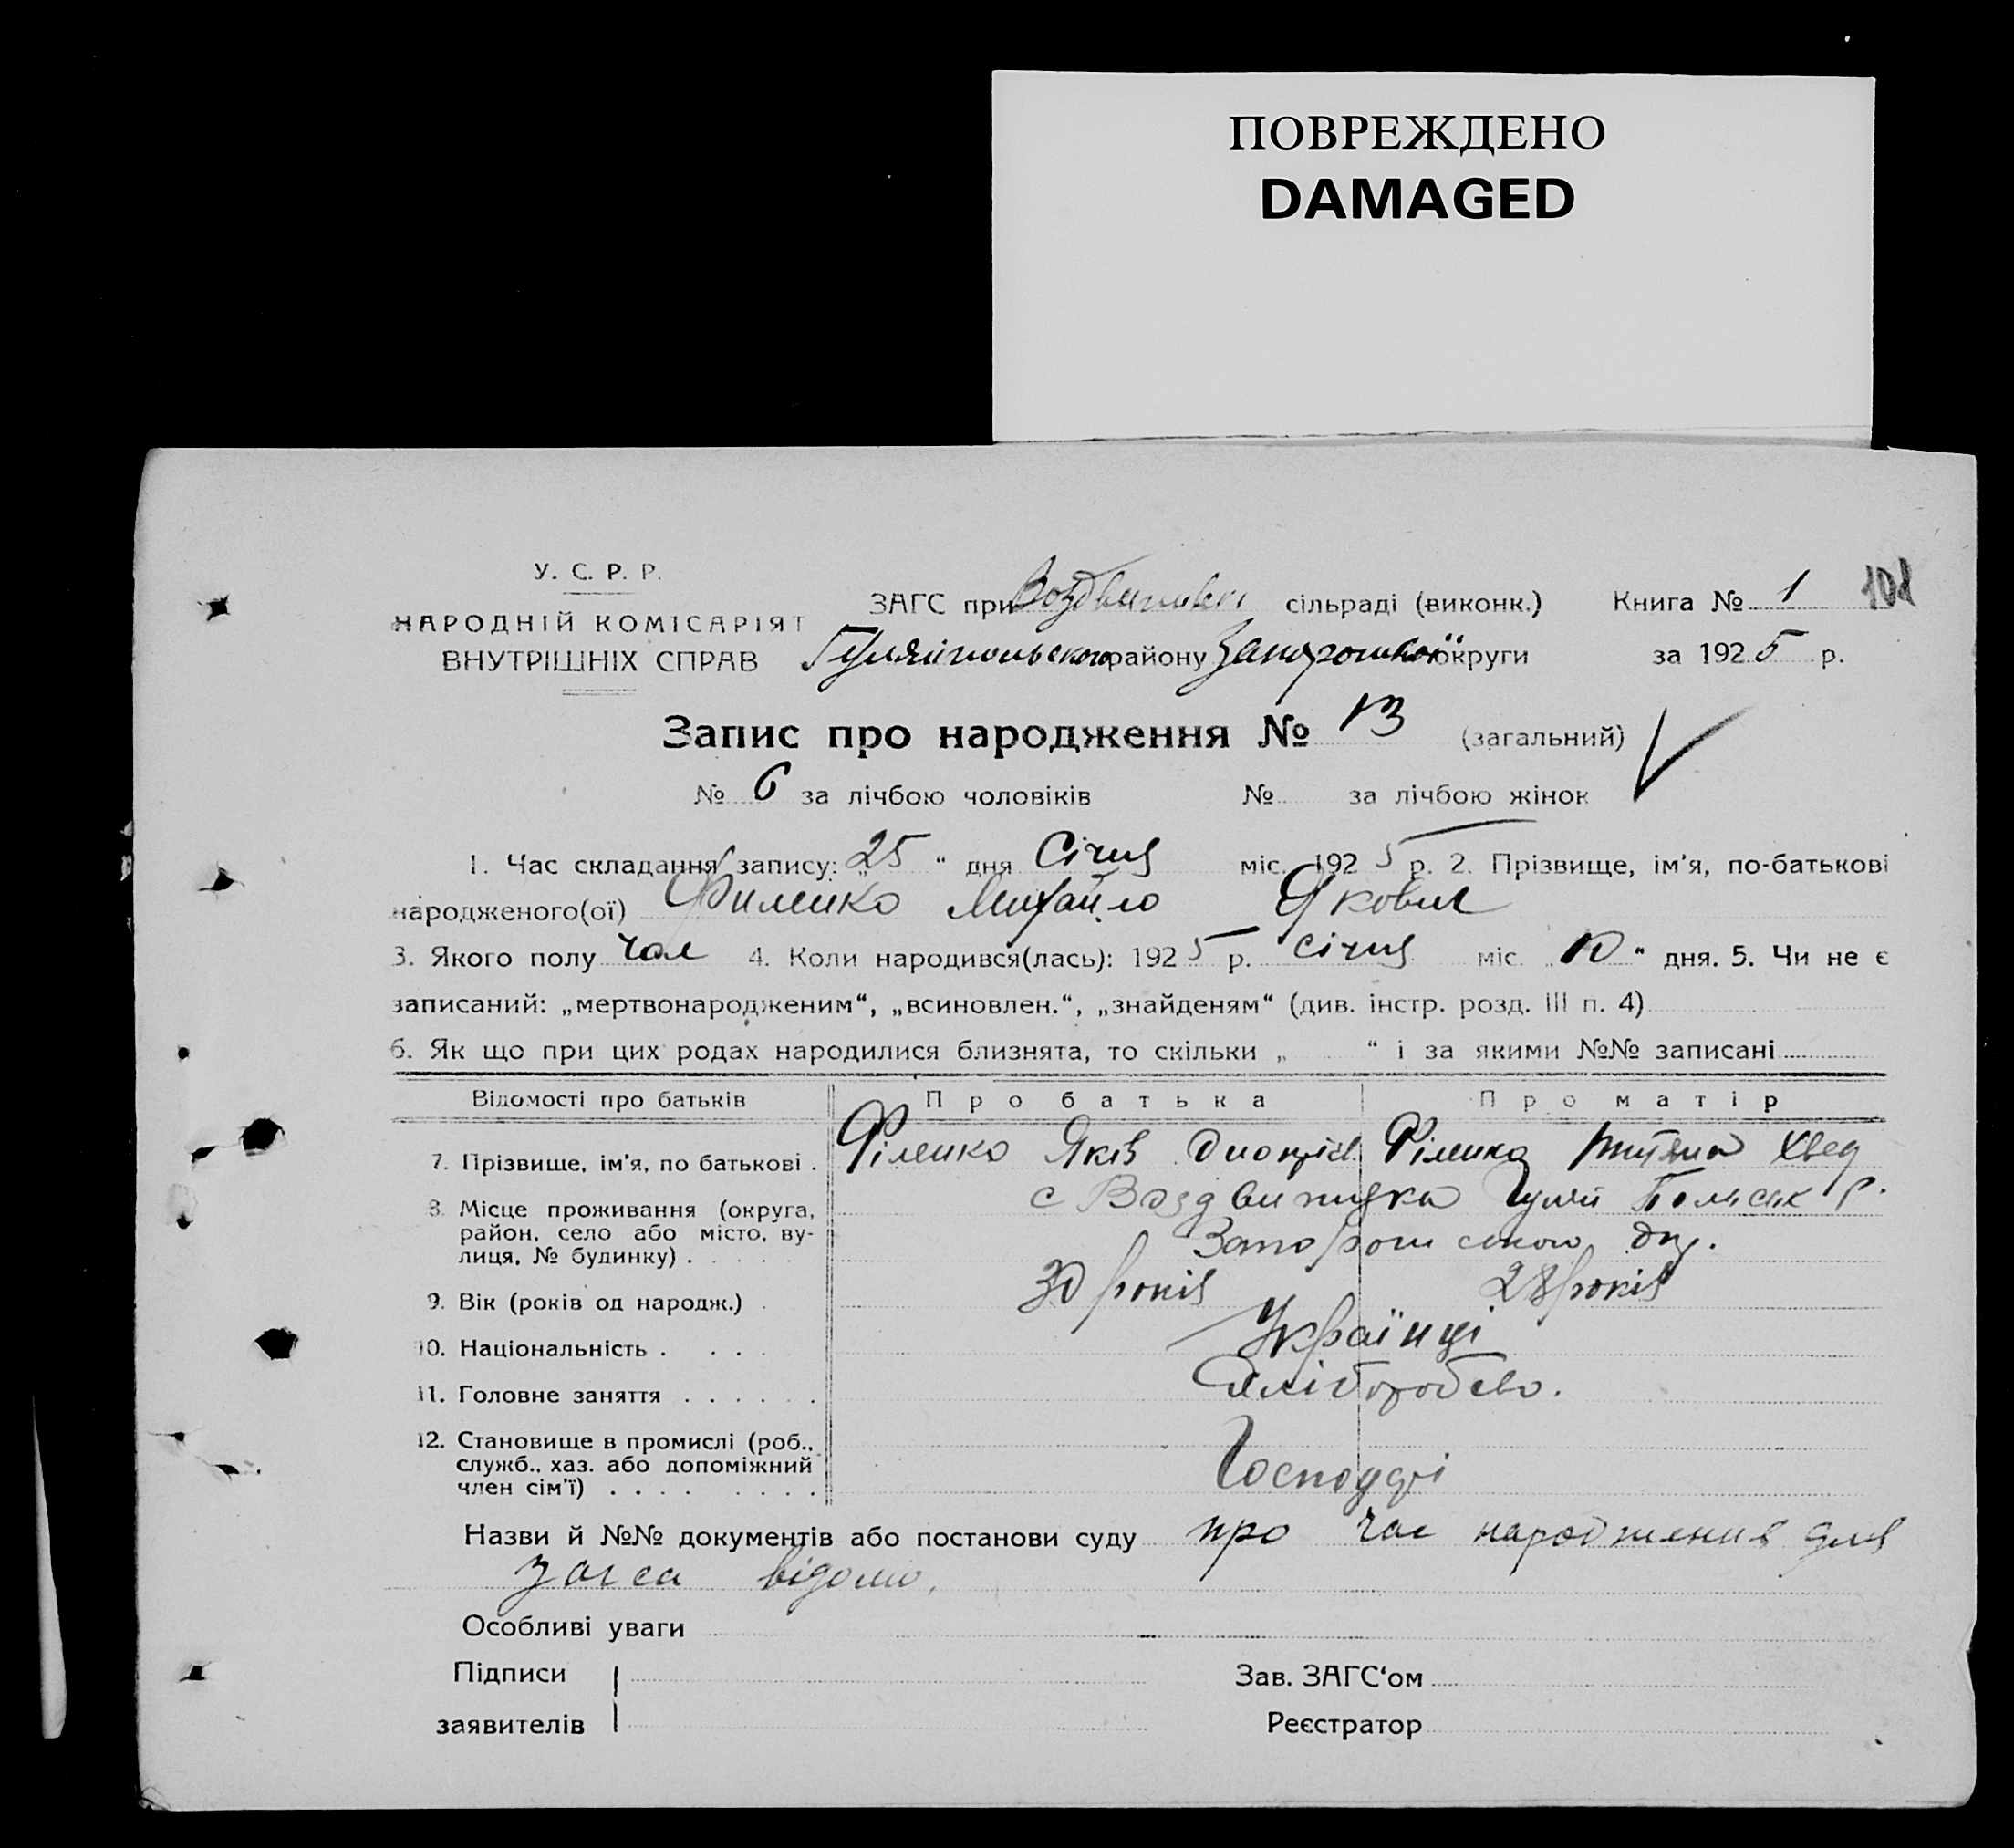 ПОВРЕЖДЕНО
DAMAGED
У. С. Р. Р.
НАРОДНІЙ КОМІСАРІЯТ
ВНУТРІШНІХ СПРАВ
ЗАГС при сільраді (виконк.) Книга № 1 101
Гуляйпольського району Запорошкої округи за 1925 р.
Запис про народження № 13 (загальний)
№ 6 за лічбою чоловіків № за лічбою жінок
1. Час складання запису: „25“ дня Січня міс. 1925 р. 2. Прізвище, ім’я, по-батькові
народженого(ої) Филенко Михайло Якович
3. Якого полу чол 4. Коли народився(лась): 1925 р. січня міс. „10“ дня. 5. Чи не є
записаний: „мертвонародженим“, „всиновлен.“, „знайденям“ (див. інстр. розд. III п. 4)
6. Як що при цих родах народилися близнята, то скільки „ “ і за якими №№ записані
Відомості про батьків Про батька Про матір
7. Прізвище, ім’я, по батькові . Філенко Яків Філенко Хвед
8. Місце проживання (округа, с Воздвижука Гуляй Польськ р.
район, село або місто, ву-
лиця, № будинку) . . . . . Запорошського
9. Вік (років од народж.) . 30 років 28 років
10. Національність . . . . Українці
11. Головне заняття . . . . . . Хліборобство.
12. Становище в промислі (роб.,
служб., хаз. або допоміжний
член сім’ї) . . . . . . . . Господарі
Назви й №№ документів або постанови суду про час народження для
загса відомо.
Особливі уваги
Підписи Зав. ЗАГС‘ом
заявителів Реєстратор